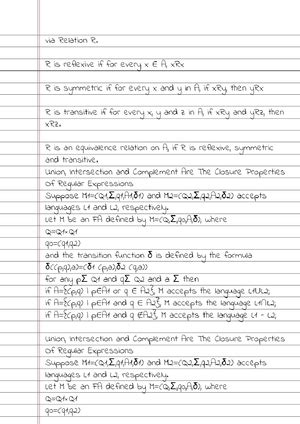 via Relation R.
R is reflexive if for every x ∈ A, xRx
R is symmetric if for every x and y in A, if xRy, then yRx
R is transitive if for every x, y and z in A, if xRy and yRz, then
xRz.
R is an equivalence relation on A, if R is reflexive, symmetric
and transitive.
Union, Intersection and Complement Are The Closure Properties
Of Regular Expressions
Suppose M1=(Q1,Σ,q1,A1,δ1) and M2=(Q2,Σ,q2,A2,δ2) accepts
languages L1 and L2, respectively.
Let M be an FA defined by M=(Q,Σ,q0,A,δ), where
Q=Q1×Q1
q0=(q1,q2)
and the transition function δ is defined by the formula
δ((p,q),a)=(δ1 (p,a),δ2 (q,a))
for any p∑ Q1 and q∑ Q2 and a ∑ then
if A={(p,q) | p∈A1 or q ∈ A2}, M accepts the language L1UL2;
if A={(p,q) | p∈A1 and q ∈ A2}, M accepts the language L1∩L2;
if A={(p,q) | p∈A1 and q ∉A2}, M accepts the language L1 - L2;
Union, Intersection and Complement Are The Closure Properties
Of Regular Expressions
Suppose M1=(Q1,Σ,q1,A1,δ1) and M2=(Q2,Σ,q2,A2,δ2) accepts
languages L1 and L2, respectively.
Let M be an FA defined by M=(Q,Σ,q0,A,δ), where
Q=Q1×Q1
q0=(q1,q2)